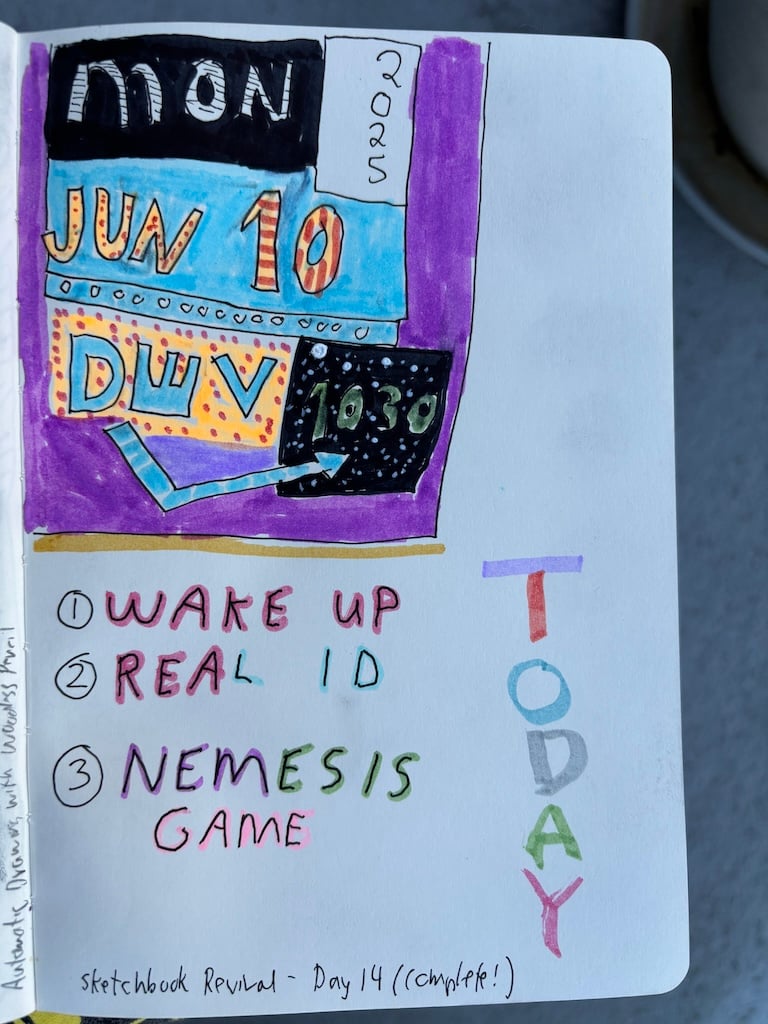 MON
2025
JUN 10
DMV
1030
① WAKE UP
② REAL ID
③ NEMESIS
GAME
TODAY
Sketchbook Revival - Day 14 (Complete!)
Automatic Drawing with Woodless Pencil